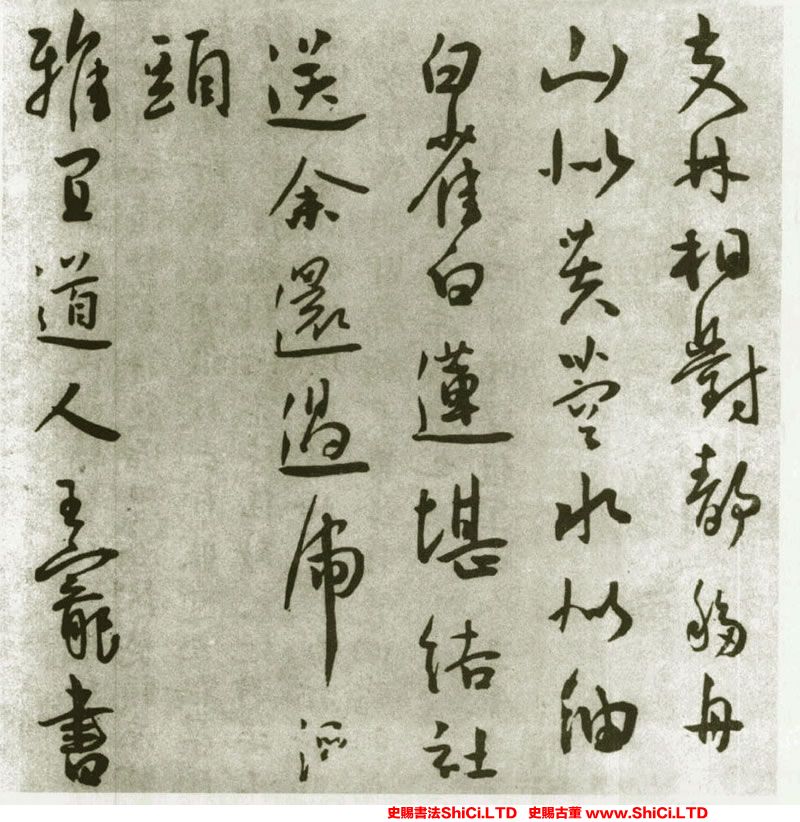 支林相對静移舟
山似芙蓉水似油
白雀白蓮堪結社
送余還過虎溪
頭
雅宜道人王寵書
史賜書法ShiCi.LTD 史賜古董 www.ShiCi.LTD